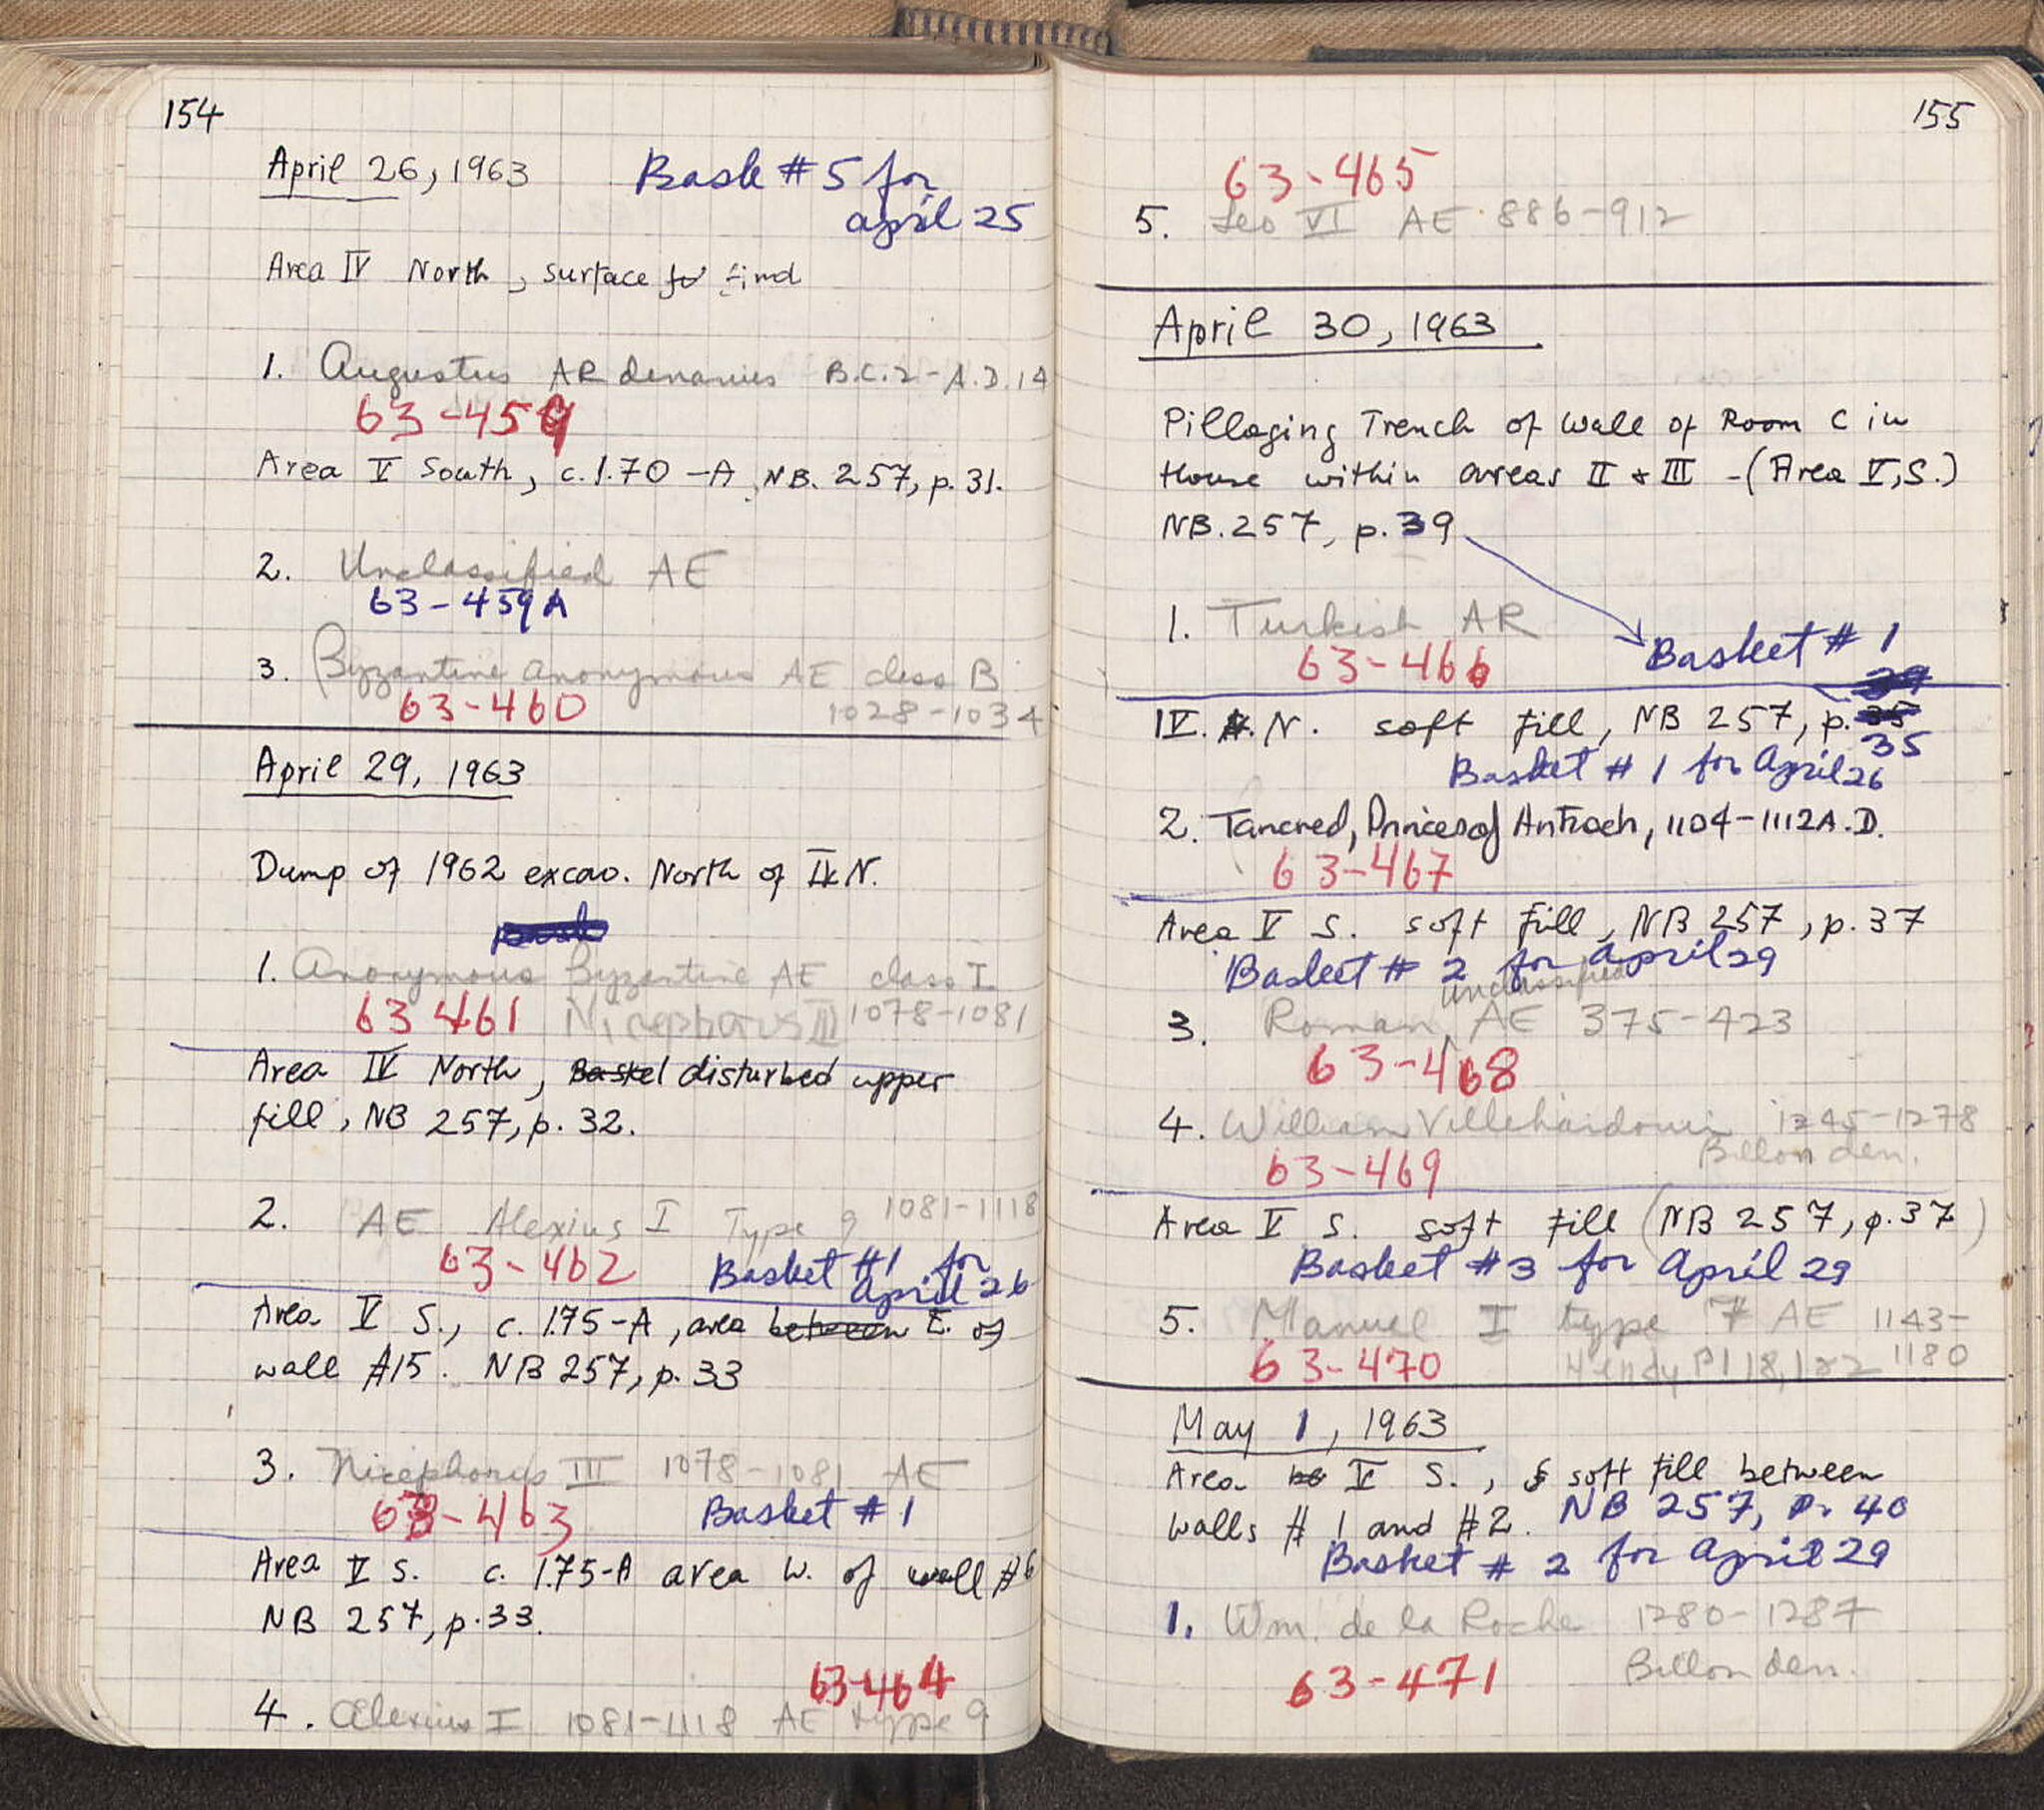 154
April 26, 1963 Bask # 5 for
april 25
Area IV North, surface find
1. Augustus AR denarius B.C. 2 - A.D. 14
63-459
Area V South, c. 1.70 -A, NB. 257, p. 31.
2. Unclassified AE
63-459A
3. Byzantine anonymous AE class B
63-460 1028-1034
April 29, 1963
Dump of 1962 excav. North of N.
1. Anonymous Byzantine AE class I
63 461 Nicephorus III 1078-1081
Area IV North, Basket disturbed upper
fill, NB 257, p. 32.
2. AE Alexius I Type 9 1081-1118
63-462 Basket #1 for
april 26
Area V S., c. 1.75-A, area between E. of
wall #15. NB 257, p. 33
3. Nicephorus III 1078-1081 AE
63-463 Basket # 1
Area V S. c. 1.75-A area W. of wall #6
NB 257, p. 33.
63-464
4. Alexius I 1081-1118 AE type 9
155
63-465
5. Leo VI AE 886-912
April 30, 1963
Pillaging Trench of Wall of Room C in
House within areas II & III - (Area V, S.)
NB. 257, p. 39
1. Turkish AR
63-466 Basket # 1
IV. N. soft fill, NB 257, p. 35
35
Basket # 1 for April 26
2. Tancred, Prince of Antioch, 1104-1112 A.D.
63-467
Area V S. soft fill, NB 257, p. 37
Basket # 2 for april 29
unclassified
3. Roman, AE 375-423
63-468
4. William Villehardouin 1245-1278
Billon den.
63-469
Area V S. soft fill (NB 257, p. 37)
Basket #3 for April 29
5. Manuel I type 7 AE 1143-
63-470 Hendy Pl 18, 1&2 1180
May 1, 1963
Area be V S., soft fill between
walls # 1 and #2. NB 257, p. 40
Basket # 2 for april 29
1. Wm. de la Roche 1280-1287
63-471 Billon den.